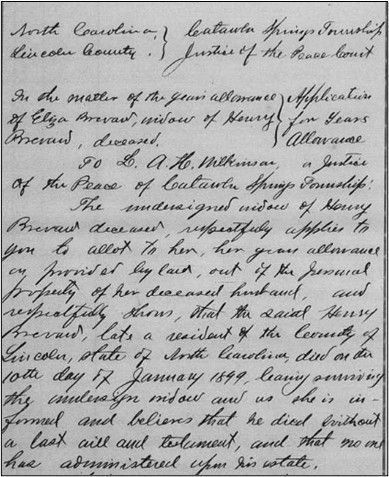 North Carolina, } Catawba Springs Township
Lincoln County. } Justice of the Peace Court
In the matter of the years allowance } Application
of Eliza Brevard, widow of Henry } for Years
Brevard, deceased. } Allowance
To L. A. H. Wilkinson, a Justice
of the Peace of Catawba Springs Township:
The undersigned widow of Henry
Brevard deceased, respectfully applies to
you to allot to her, her years allowance
as provided by law, out of the personal
property of her deceased husband, and
respectfully shows, that the said Henry
Brevard, late a resident of the County of
Lincoln, state of North Carolina, died on the
10th day of January 1899, leaving surviving
the undersign widow and as she is in-
formed and believes that he died without
a last will and testament, and that no one
has administered upon his estate.